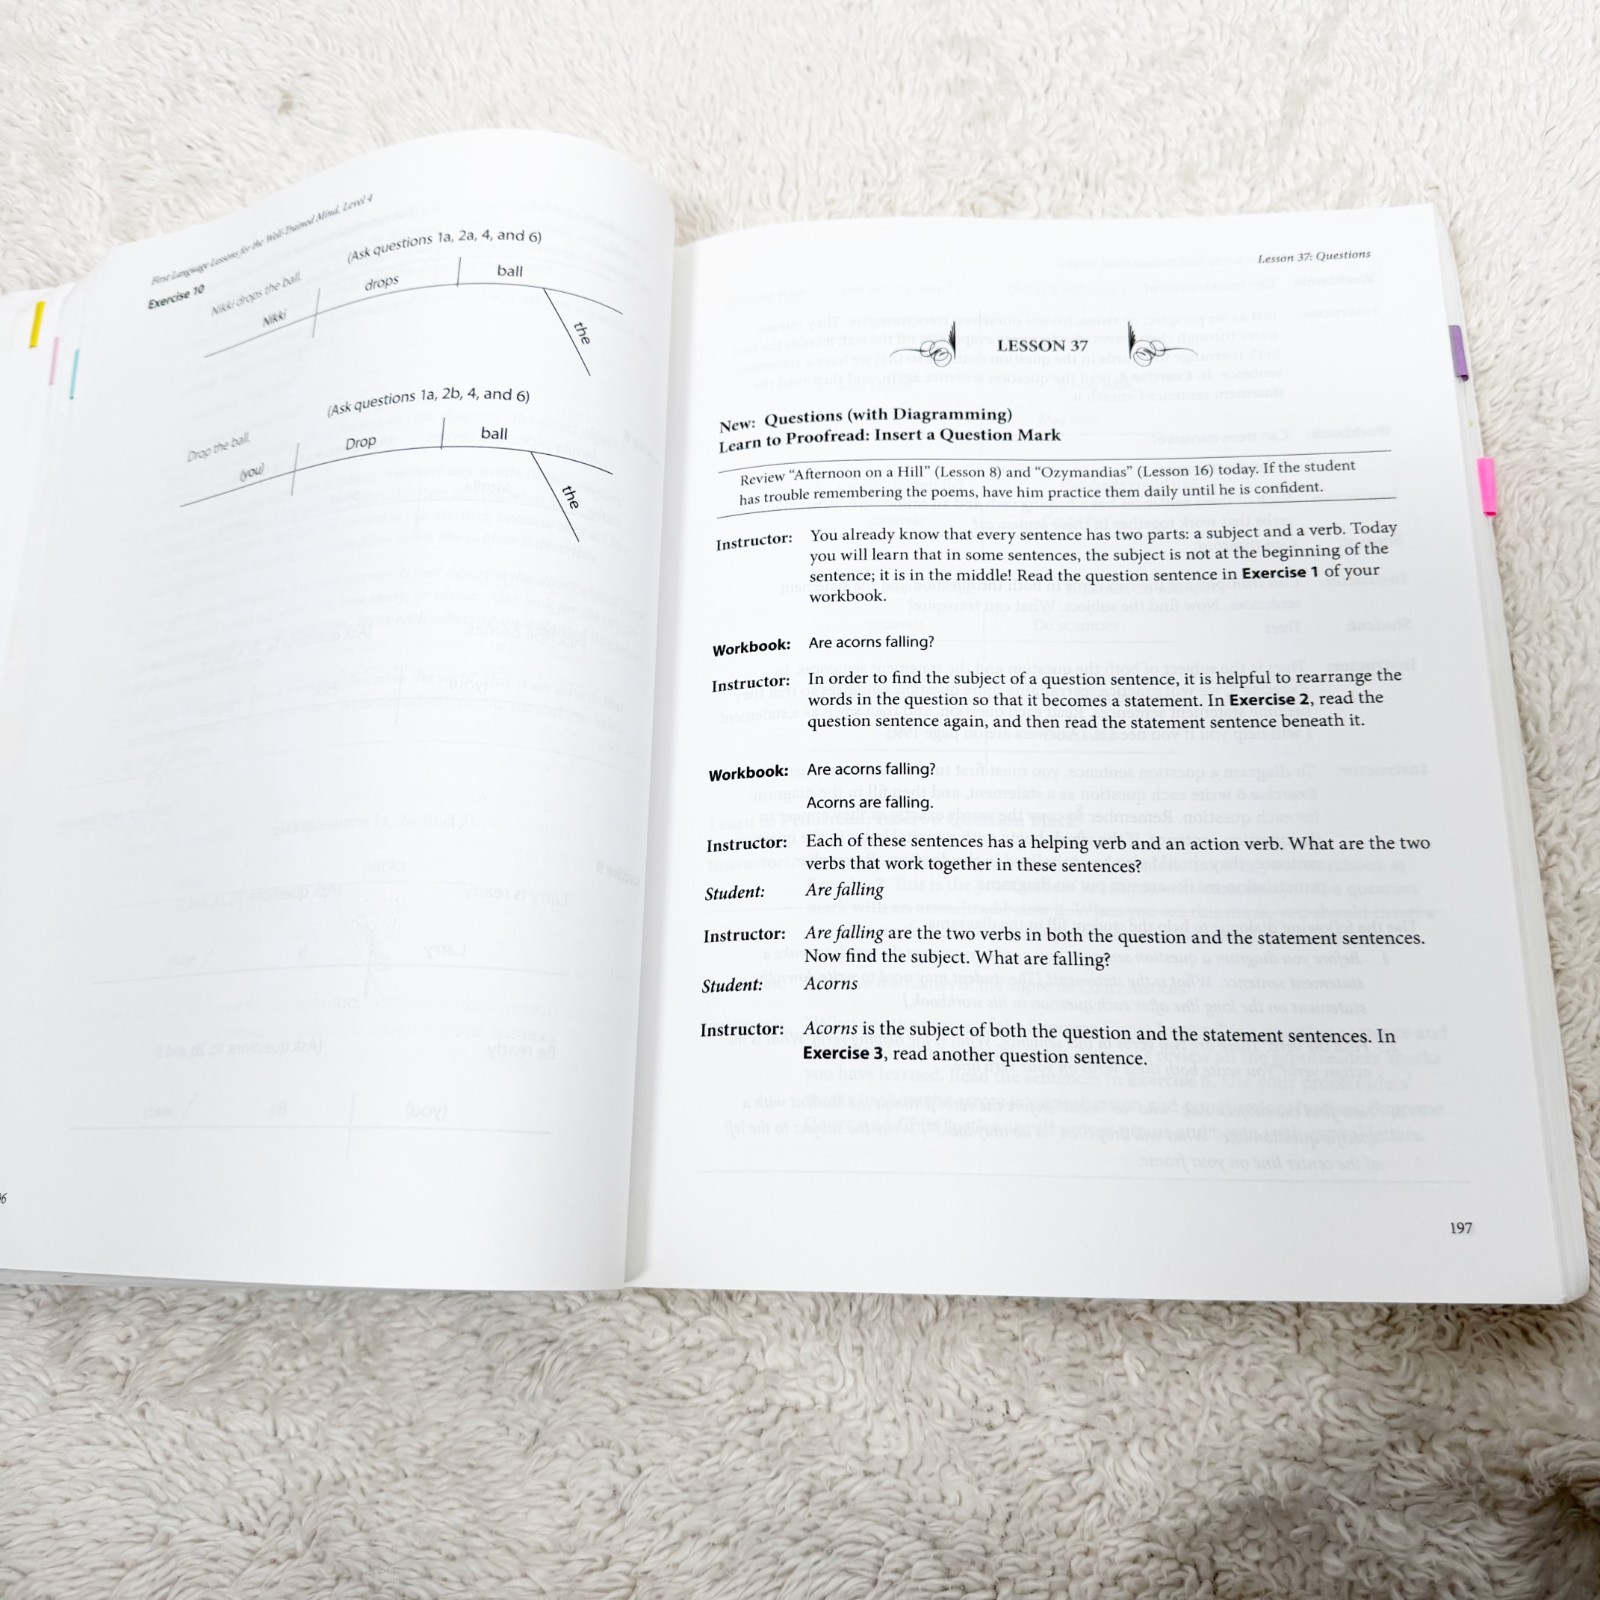 First Language Lessons for the Well-Trained Mind, Level 4
Exercise 10
Nikki drops the ball.
(Ask questions 1a, 2a, 4, and 6)
Nikki
drops
ball
the
Drop the ball.
(Ask questions 1a, 2b, 4, and 6)
(you)
Drop
ball
the
Lesson 37: Questions
LESSON 37
New: Questions (with Diagramming)
Learn to Proofread: Insert a Question Mark
Review “Afternoon on a Hill” (Lesson 8) and “Ozymandias” (Lesson 16) today. If the student
has trouble remembering the poems, have him practice them daily until he is confident.
Instructor: You already know that every sentence has two parts: a subject and a verb. Today
you will learn that in some sentences, the subject is not at the beginning of the
sentence; it is in the middle! Read the question sentence in Exercise 1 of your
workbook.
Workbook: Are acorns falling?
Instructor: In order to find the subject of a question sentence, it is helpful to rearrange the
words in the question so that it becomes a statement. In Exercise 2, read the
question sentence again, and then read the statement sentence beneath it.
Workbook: Are acorns falling?
Acorns are falling.
Instructor: Each of these sentences has a helping verb and an action verb. What are the two
verbs that work together in these sentences?
Student: Are falling
Instructor: Are falling are the two verbs in both the question and the statement sentences.
Now find the subject. What are falling?
Student: Acorns
Instructor: Acorns is the subject of both the question and the statement sentences. In
Exercise 3, read another question sentence.
197